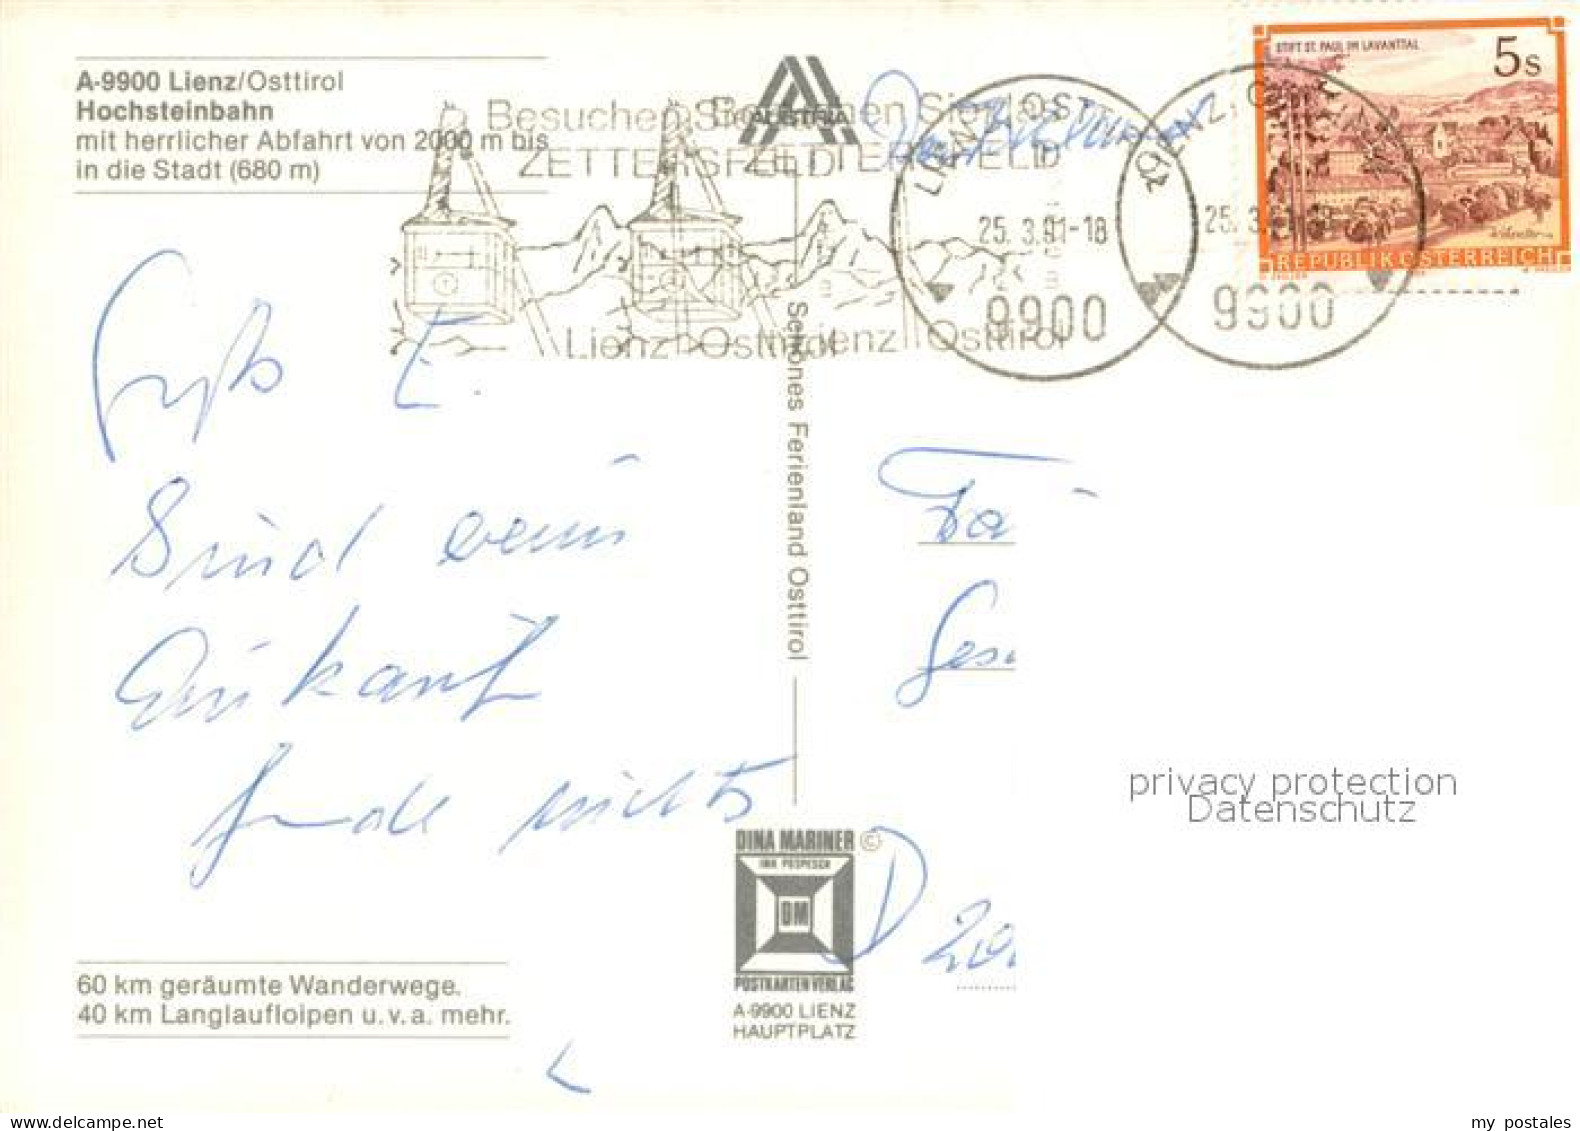 A-9900 Lienz/Osttirol
Hochsteinbahn
mit herrlicher Abfahrt von 2000 m bis
in die Stadt (680 m)
AUSTRIA
Besuchen Sie
ZETTERSFELD
Lienz Osttirol
Besuchen Sie
ZETTERSFELD
Lienz Osttirol
LIENZ, OSTTIR
25. 3.91-18
9900
LIENZ, O
25. 3.
9900
STIFT ST. PAUL IM LAVANTTAL
5s
REPUBLIK ÖSTERREICH
Schönes Ferienland Osttirol
Gruß E.
Sind beim
Einkauf
finde nichts
Fa
Ges
D
DINA MARINER ©
INH POSPESCH
DM
POSTKARTENVERLAG
A-9900 LIENZ
HAUPTPLATZ
60 km geräumte Wanderwege.
40 km Langlaufloipen u.v.a. mehr.
privacy protection
Datenschutz
my postales